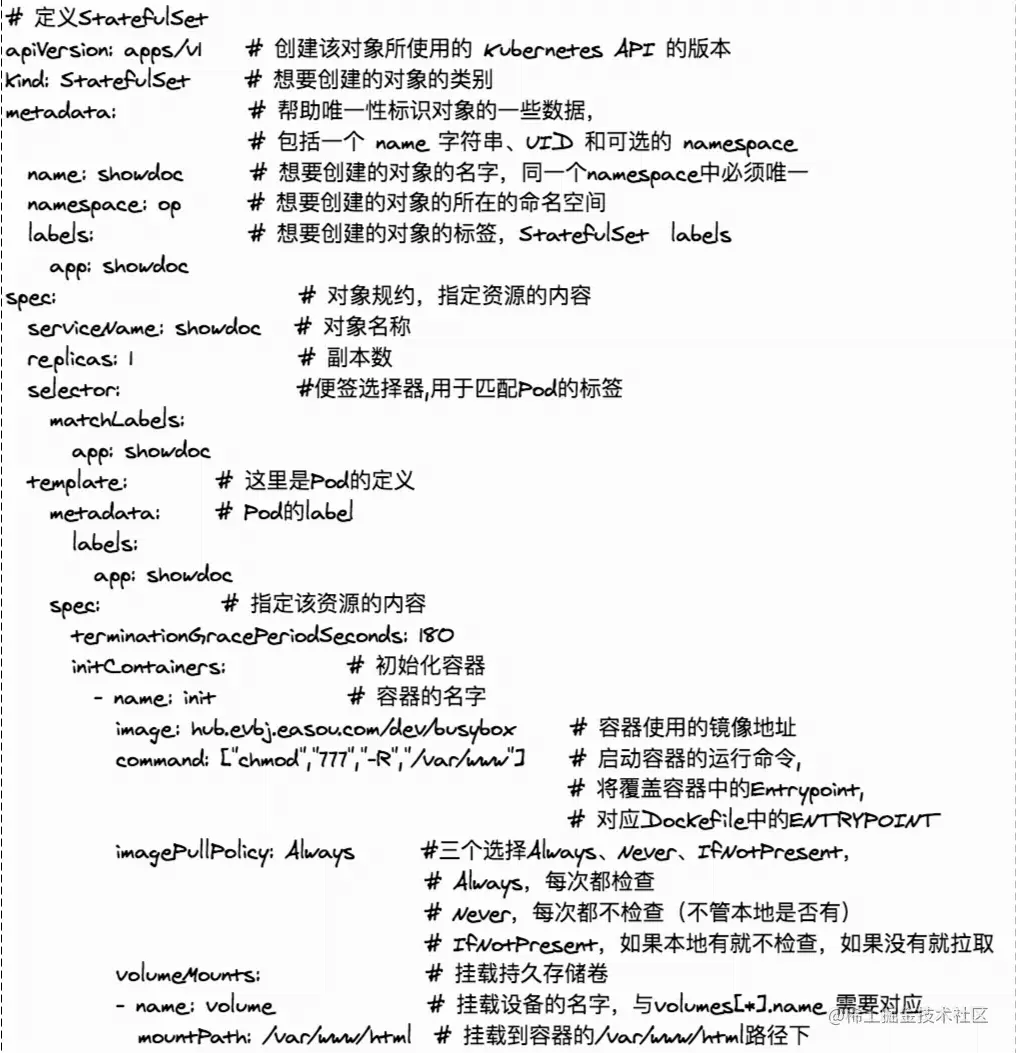 # 定义StatefulSet
apiVersion: apps/v1 # 创建该对象所使用的 Kubernetes API 的版本
kind: StatefulSet # 想要创建的对象的类别
metadata: # 帮助唯一性标识对象的一些数据，
# 包括一个 name 字符串、UID 和可选的 namespace
name: showdoc # 想要创建的对象的名字，同一个namespace中必须唯一
namespace: op # 想要创建的对象的所在的命名空间
labels: # 想要创建的对象的标签，StatefulSet labels
app: showdoc
spec: # 对象规约，指定资源的内容
serviceName: showdoc # 对象名称
replicas: 1 # 副本数
selector: #便签选择器,用于匹配Pod的标签
matchLabels:
app: showdoc
template: # 这里是Pod的定义
metadata: # Pod的label
labels:
app: showdoc
spec: # 指定该资源的内容
terminationGracePeriodSeconds: 180
initContainers: # 初始化容器
- name: init # 容器的名字
image: hub.evbj.easou.com/dev/busybox # 容器使用的镜像地址
command: ["chmod","777","-R","/var/www"] # 启动容器的运行命令,
# 将覆盖容器中的Entrypoint,
# 对应Dockefile中的ENTRYPOINT
imagePullPolicy: Always #三个选择Always、Never、IfNotPresent，
# Always，每次都检查
# Never，每次都不检查（不管本地是否有）
# IfNotPresent，如果本地有就不检查，如果没有就拉取
volumeMounts: # 挂载持久存储卷
- name: volume # 挂载设备的名字，与volumes[*].name 需要对应
@稀土掘金技术社区
mountPath: /var/www/html # 挂载到容器的/var/www/html路径下